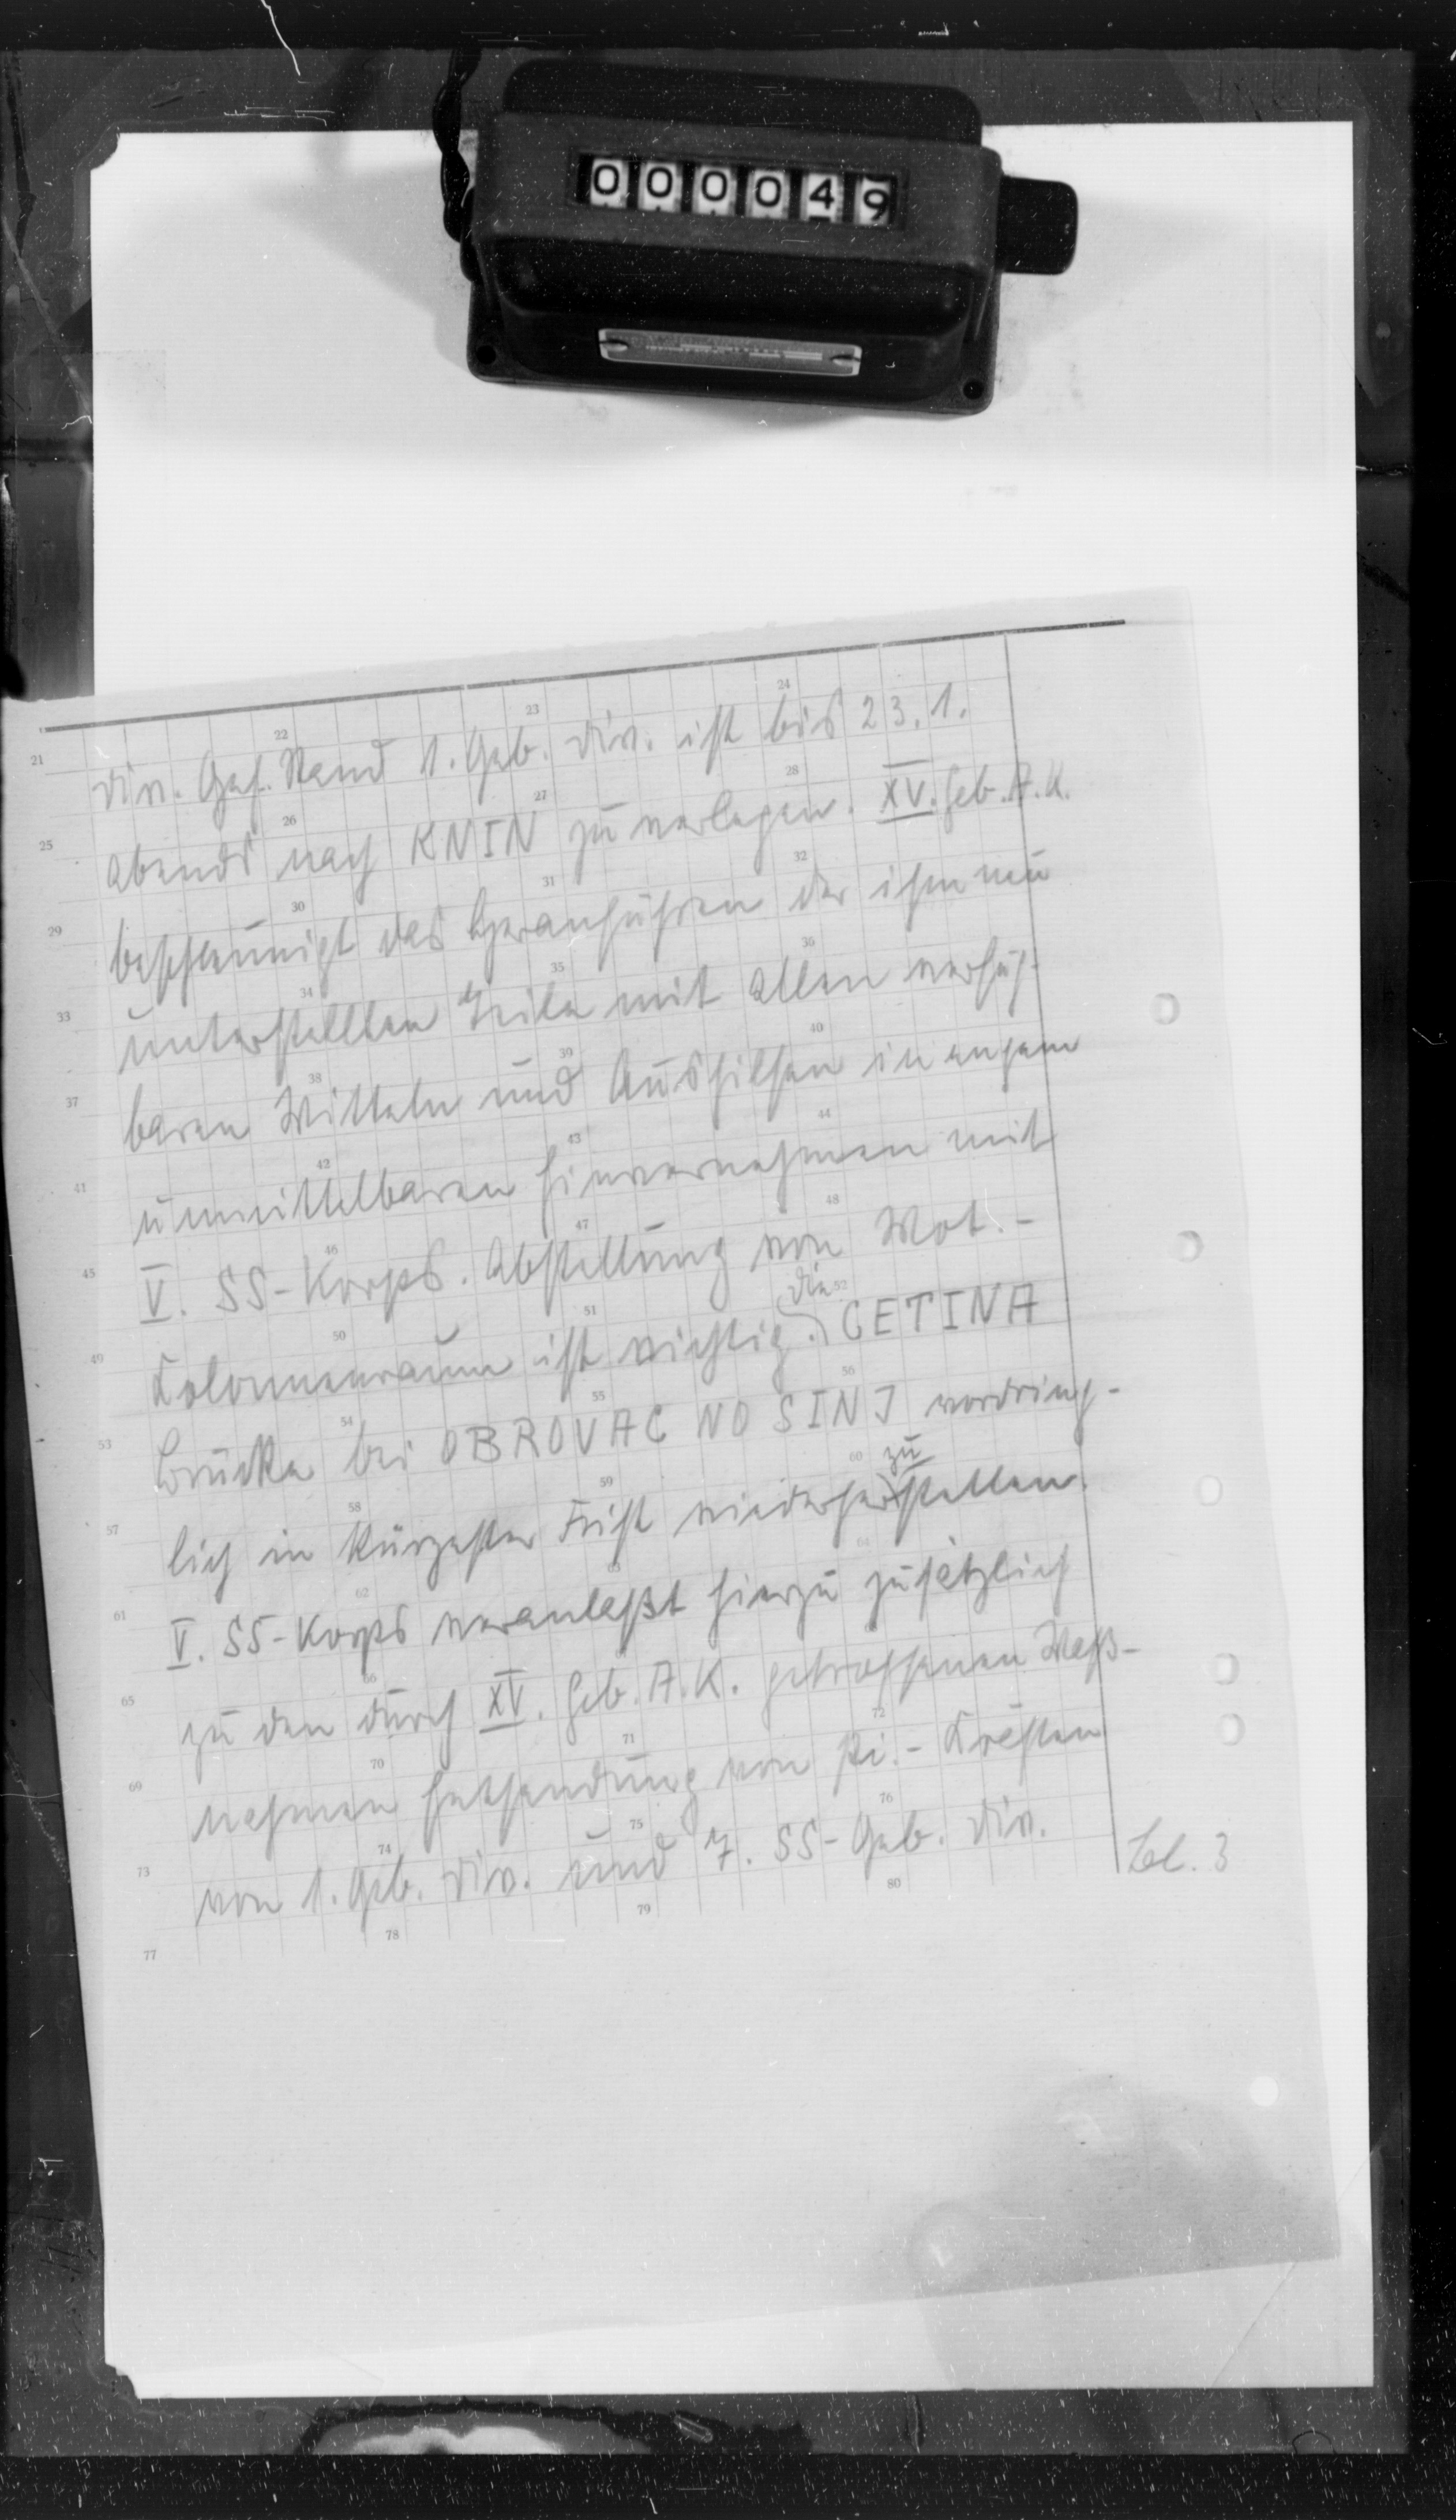 000049
21 22 23 24
Div. Gef. Stand 1. Geb. Div. ist bis 23.1.
25 26 27 28
abends nach KNIN zu verlegen. XV. Geb. A.K.
29 30 31 32
beschleunigt das Heranführen der ihm neu
33 34 35 36
unterstellten Teile mit allen verfüg-
37 38 39 40
baren Mitteln und Aushilfen in engem
41 42 43 44
unmittelbaren Einvernehmen mit
45 46 47 48
V. SS-Korps. Abstellung von Mot.-
49 50 51 52
Kolonnenraum ist wichtig. die CETINA
53 54 55 56
Brücke bei OBROVAC NO SINJ vordring-
57 58 59 60
lich in kürzester Frist wiederherzustellen.
61 62 63 64
V. SS-Korps veranlaßt hierzu zusätzlich
65 66
zu den durch XV. Geb. A.K. getroffenen Maß-
69 70 71 72
nahmen Entsendung von Pi.-Kräften
73 74 75 76
von 1. Geb. Div. und 7. SS-Geb. Div.
77 78 79 80
Bl. 3